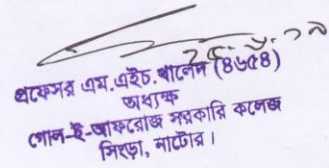 ২৫.৮.১৯
প্রফেসর এম.এইচ.খালেদ (৪৬৫৪)
অধ্যক্ষ
গোল-ই-আফরোজ সরকারি কলেজ
সিংড়া, নাটোর।